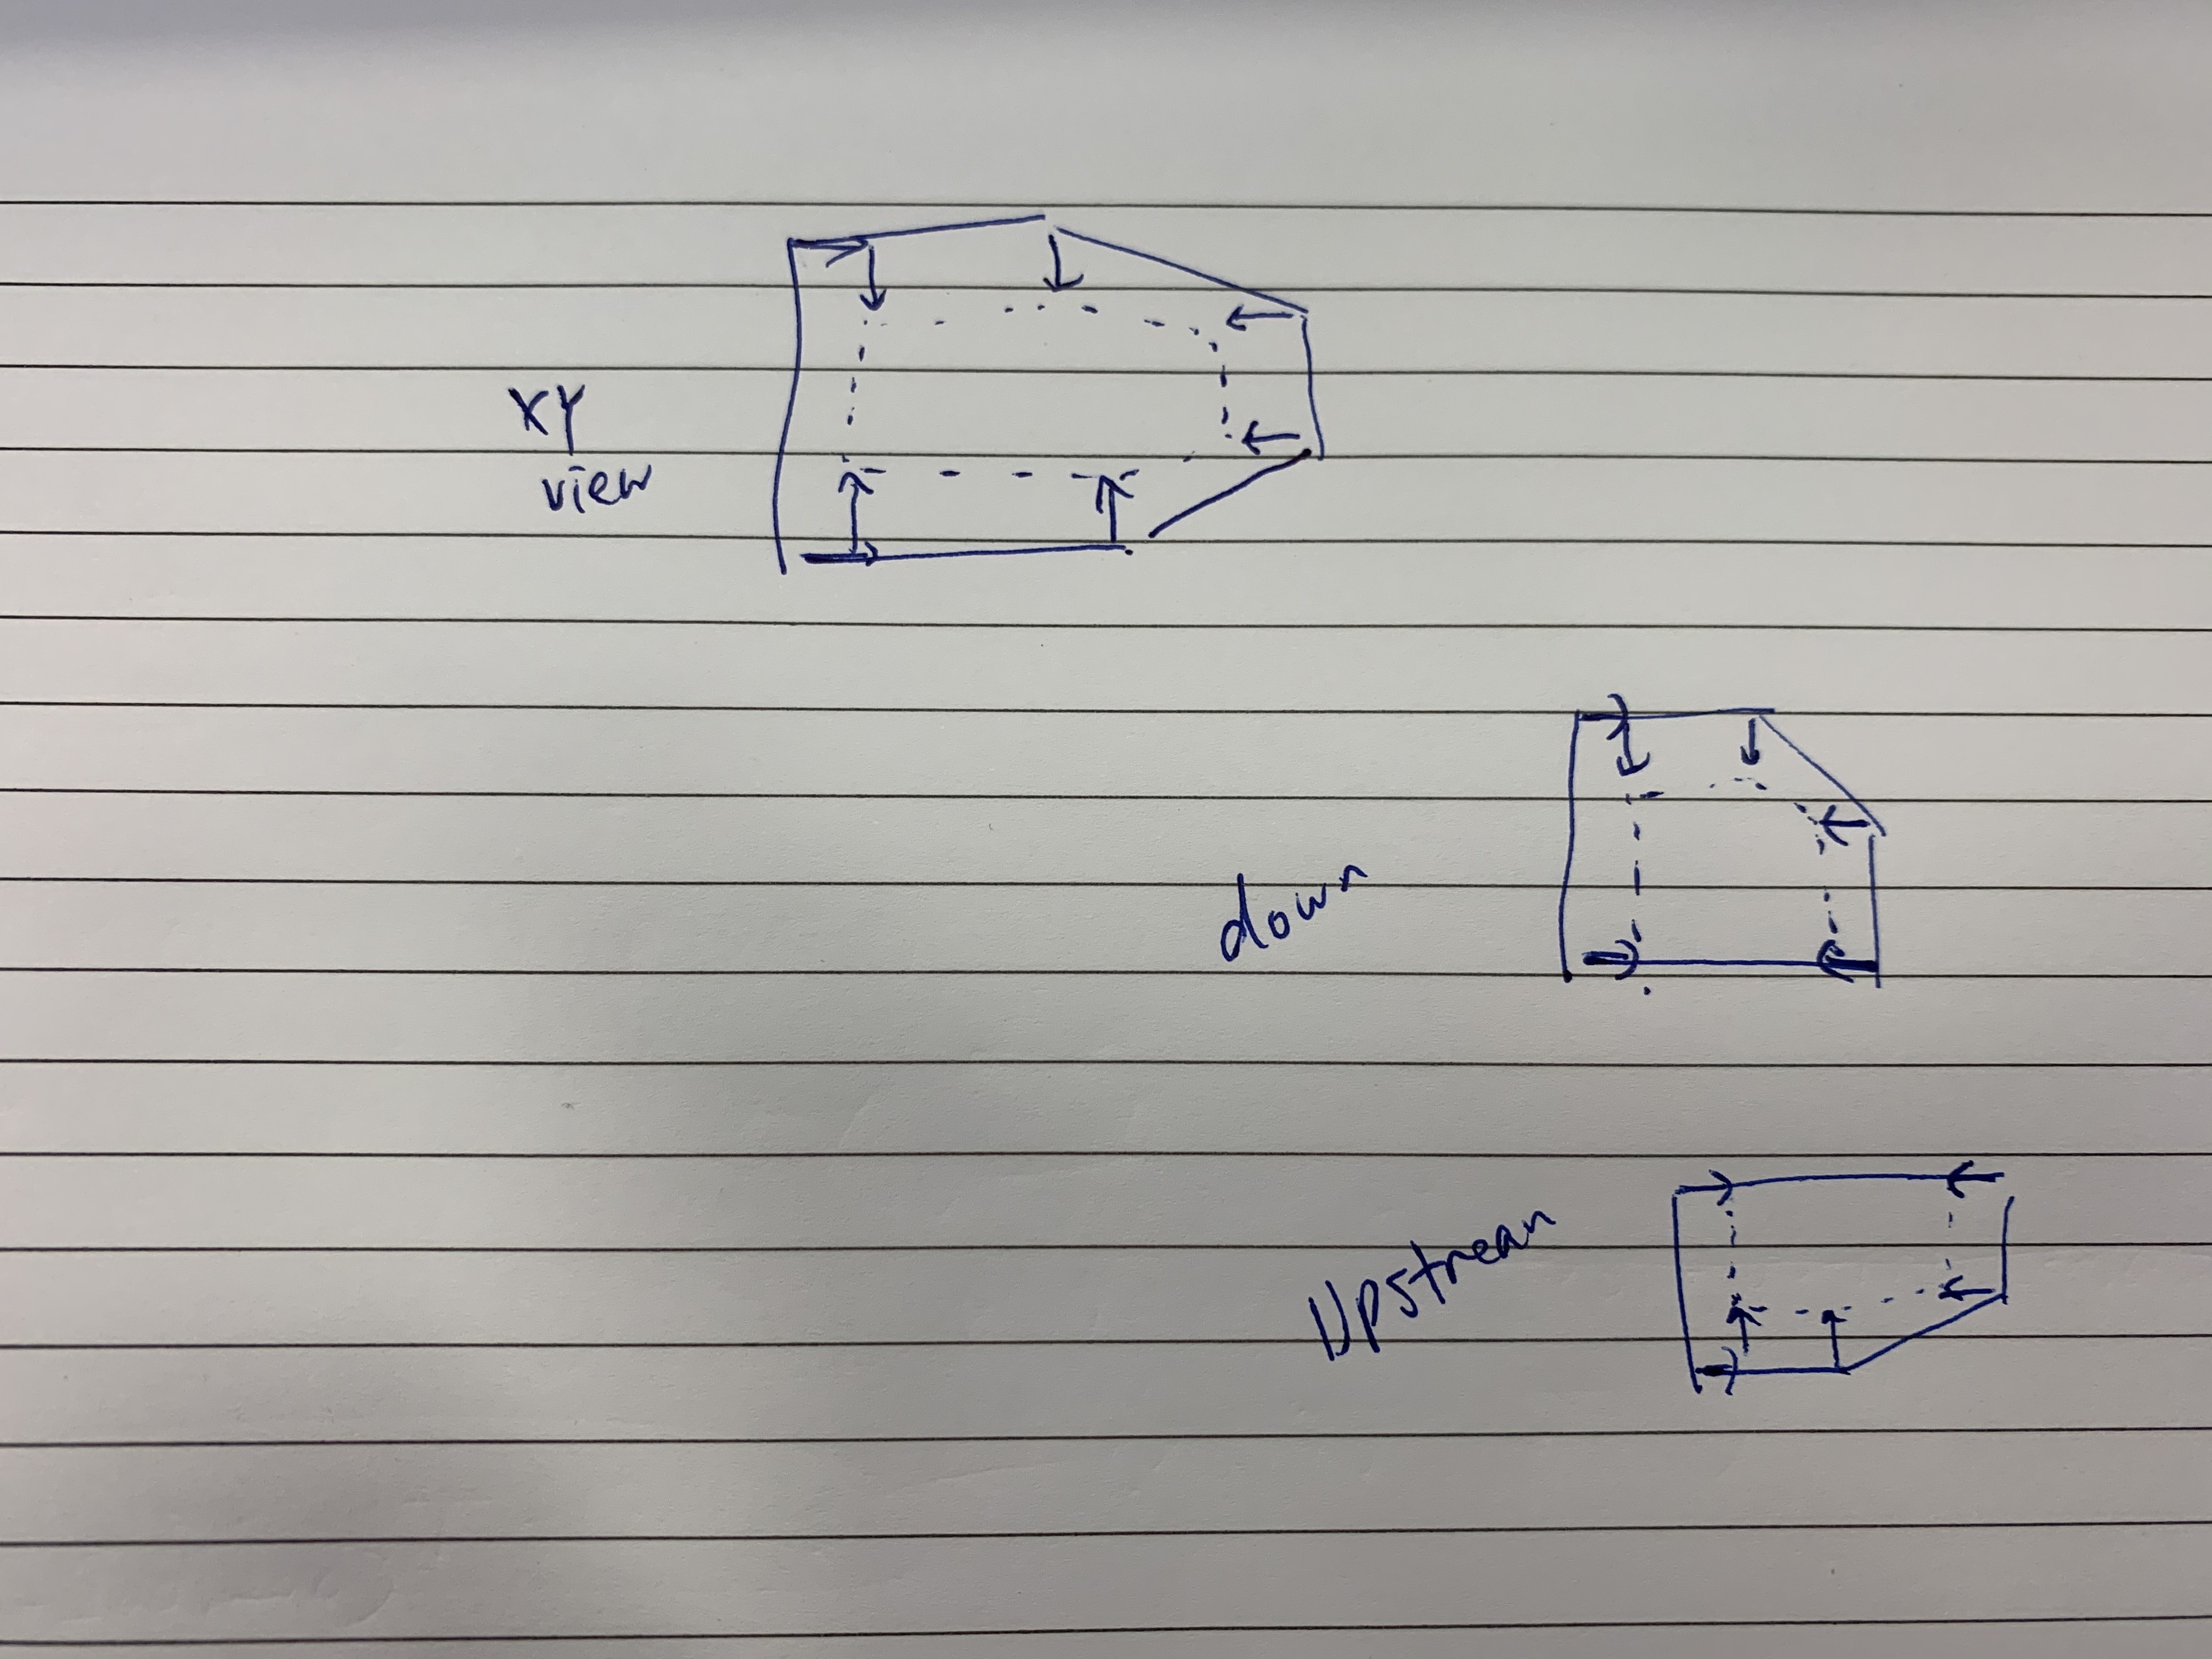 XY
view
down
Upstream